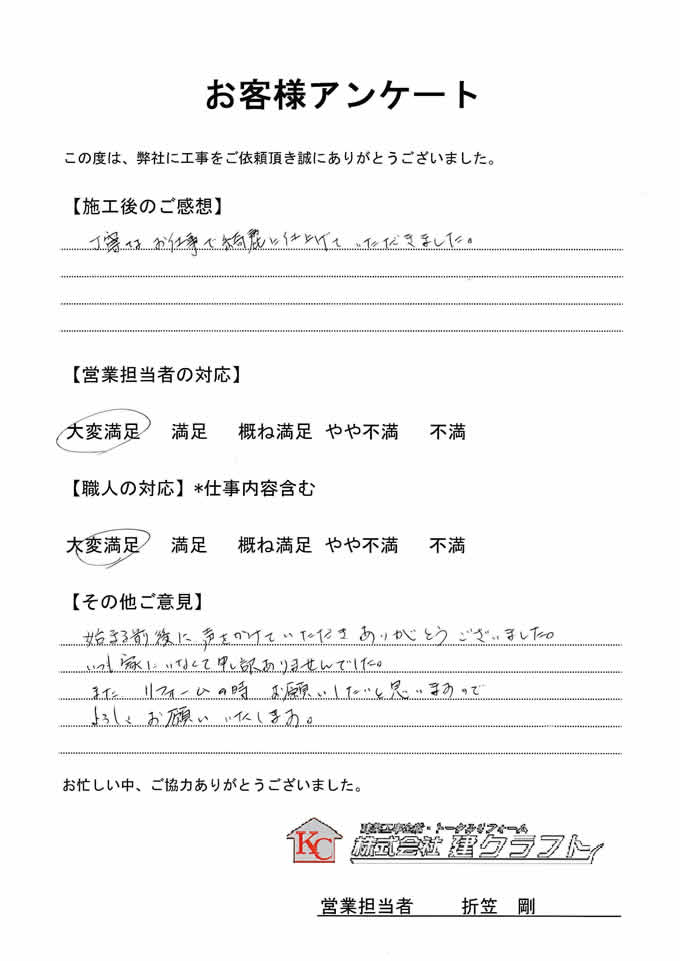 お客様アンケート
この度は、弊社に工事をご依頼頂き誠にありがとうございました。
【施工後のご感想】
丁寧なお仕事で綺麗に仕上げていただきました。
【営業担当者の対応】
大変満足 満足 概ね満足 やや不満 不満
【職人の対応】*仕事内容含む
大変満足 満足 概ね満足 やや不満 不満
【その他ご意見】
始まる前後に声をかけていただきありがとうございました。
いつも家にいなくて申し訳ありませんでした。
また リフォームの時 お願いしたいと思いますので
よろしくお願いいたします。
お忙しい中、ご協力ありがとうございました。
KC
建築工事全般・トータルリフォーム
株式会社 建クラフト
営業担当者 折笠 剛